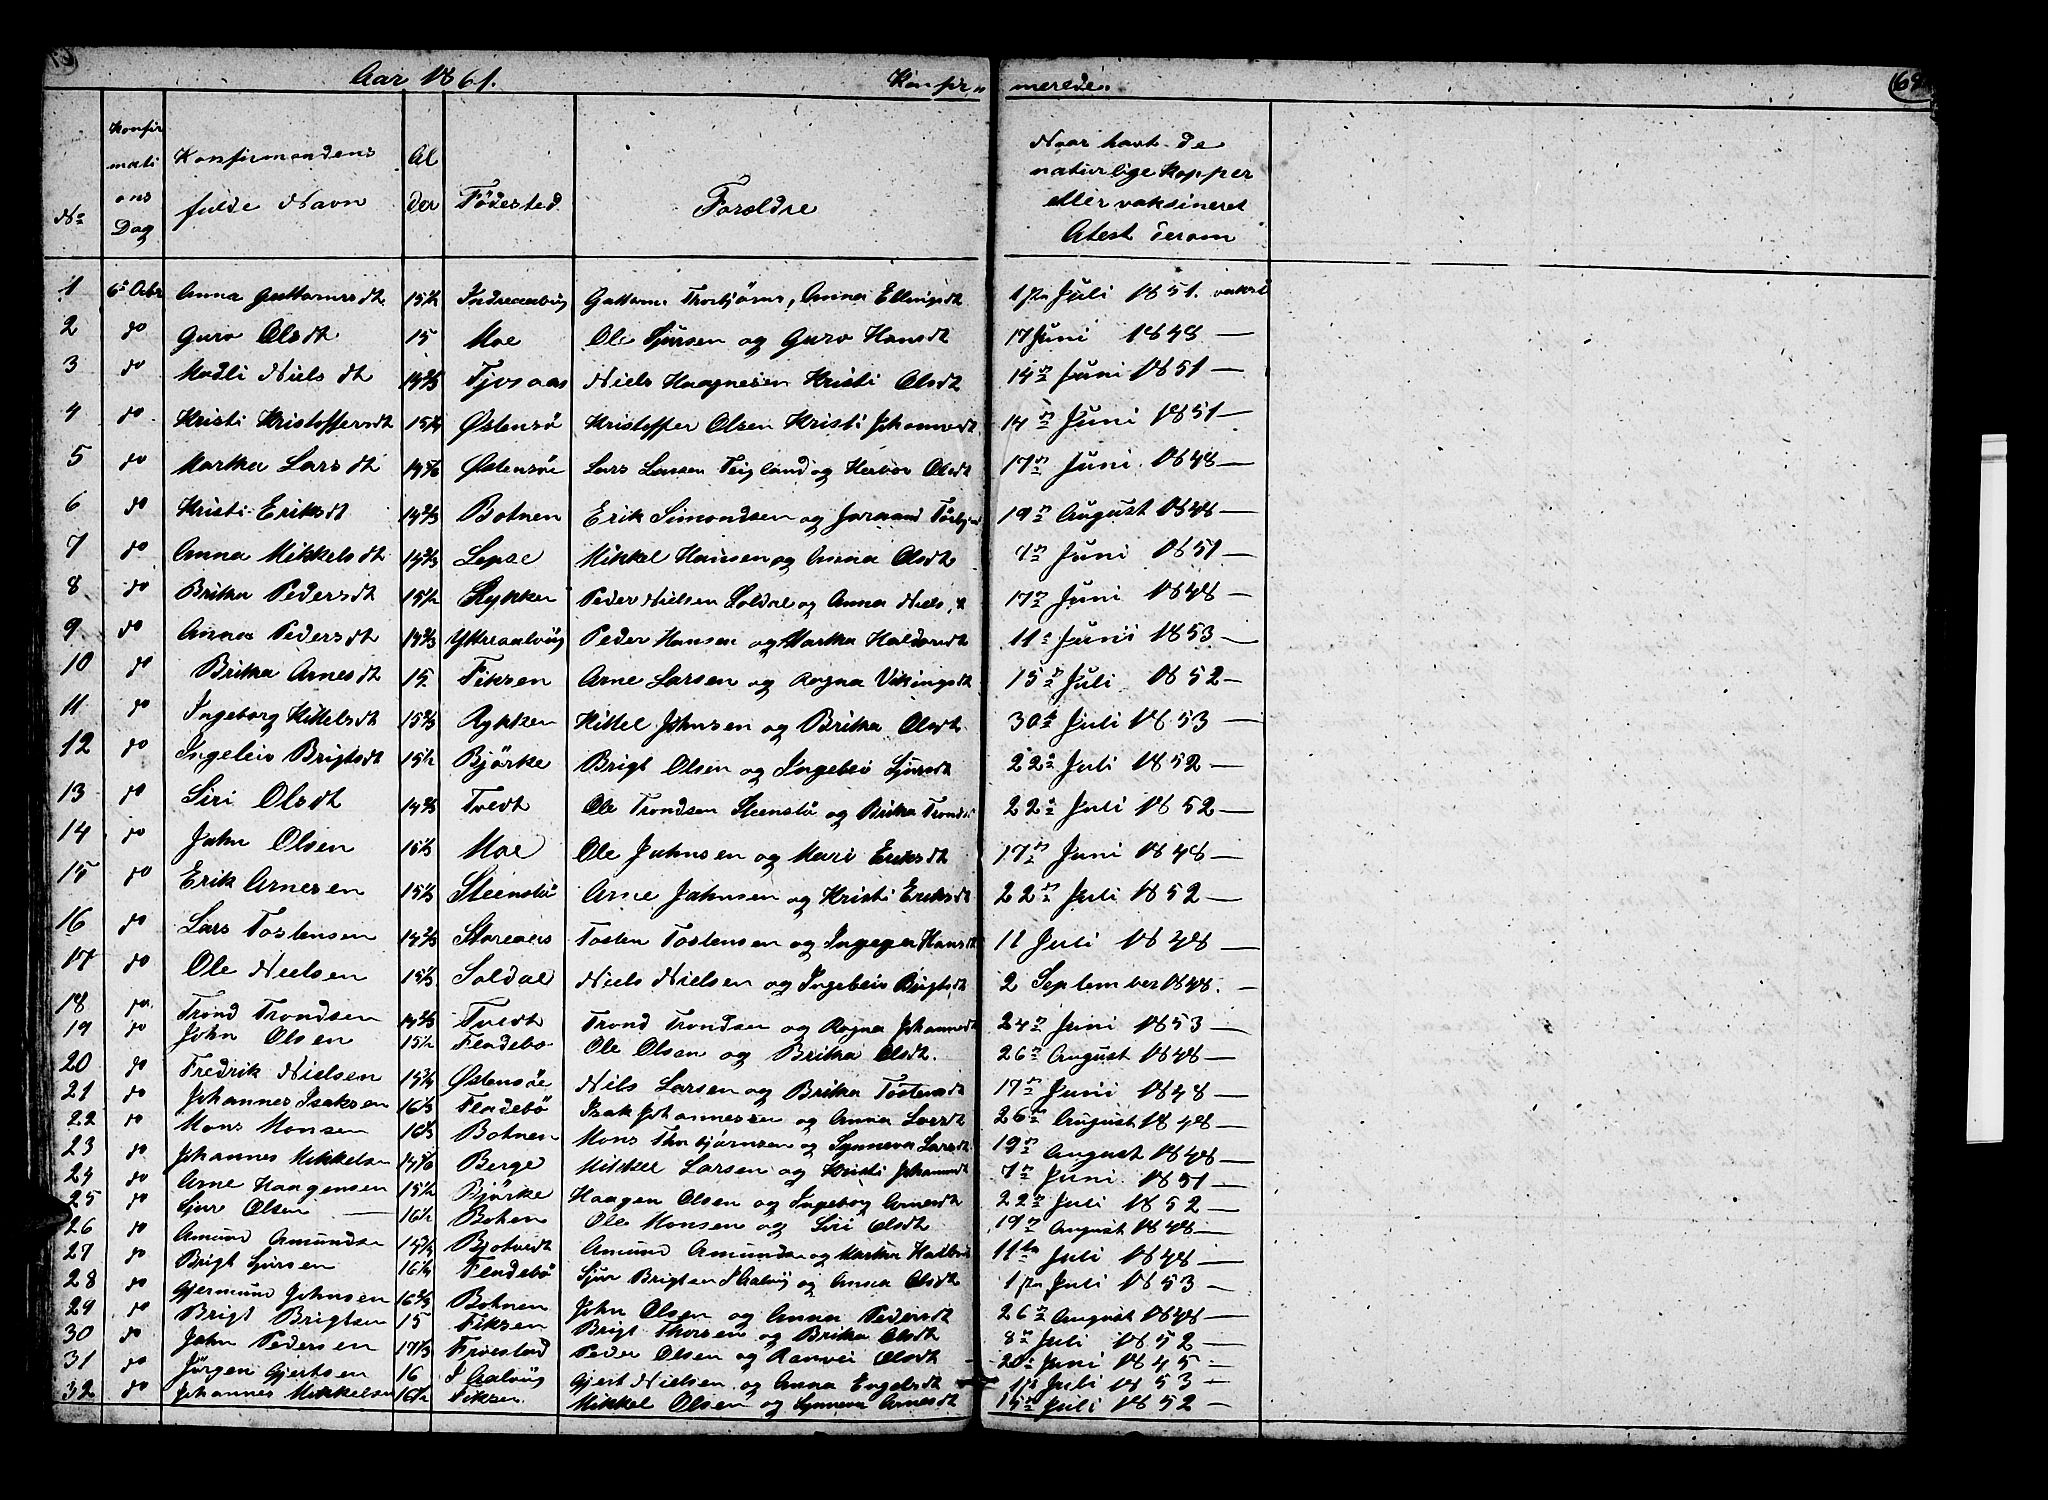 Aar 1861. Konfir„ merede„ 69
No Konfirmations Dag Konfirmandens fulde Navn Alder Födested Forældre Naar havt de naturlige Kopper eller vaksineret Atest derom
1 6te Octbr Anna Guttormsdt 15½ Indreaalvig Guttorm Thorbjörns, Anna Ellingsdt 1ste Juli 1851. vaksi
2 do Guro Olsdt 15 Moe Ole Sjursen og Guro Hansdt 17 Juni 1848 —
3 do Madli Nielsdt Tjosaas Niels Haagnesen Kristi Olsdt 14de Juni 1851 —
4 do Kristi Kristoffersdt Östensö Kristoffer Olsen Kristi Johannesdt 14de Juni 1851 —
5 do Martha Larsdt Östensöe Lars Larsen Teigland og Herbor Olsdt 17de Juni 1848 —
6 do Kristi Eriksdt Botnen Erik Simondsen og 19de August 1848 —
7 do Anna Mikkelsdt Lepse Mikkel Hansen og Anna Olsdt 7de Juni 1851 —
8 do Britha Pedersdt 15½ Rykken Peder Nielsen Soldal og Anna Niels.t 17de Juni 1848 —
9 do Anna Pedersdt Ytreaalvig Peder Hansen og Martha Haldorsdt 11te Juni 1853 —
10 do Britha Arnesdt 15 Fiksen Arne Larsen og Ragna Vikingsdt 15de Juli 1852 —
11 do Ingeborg Kittelsdt Rykken Kittel Johnsen og Britha Olsdt 30te Juli 1853 —
12 do Ingeleiv Brigtsdt 15½ Björke Brigt Olsen og Ingebeiv Sjursdt 22de Juli 1852 —
13 do Siri Olsdt Tvedt Ole Trondsen Steenstö og Britha Tronds 22de Juli 1852 —
14 do John Olsen Moe Ole Johnsen og Mari Eriksdt 17de Juni 1848 —
15 do Erik Arnesen Steenstö Arne Johnsen og Kristi Eriksdt 22de Juli 1852 —
16 do Lars Tostensen Tosten Tostensen og Hansdt 11 Juli 1848 —
17 do Ole Nielsen Soldal Niels Nielsen og Ingebeiv Brigtsdt 2 September 1848. —
18 do Trond Trondsen Tvedt Trond Trondsen og Ragna Johannesdt 24de Juni 1853 —
19 do John Olsen 15½ Fladebö Ole Olsen og Britha Olsdt. 26de August 1848 —
20 do Fredrik Nielsen Östensöe Nils Larsen og Britha Tostensdt 17de Juni 1848 —
21 do Johannes Isaksen Fladebö Isak Johannessen og Anna Larsdt 26de August 1848 —
22 do Mons Monsen Botnen Mons Thorbjörnsen og Synneva Larsdt 19de August 1848 —
23 do Johannes Mikkelsen Berge Mikkel Larsen og Kristi Johannesdt 7de Juni 1851 —
24 do Arne Haagensen 15½ Björke Haagen Olsen og Ingeborg Arnesdt 22de Juli 1852 —
25 do Sjur Olsen — 16½ Botnen Ole Monsen og Siri Olsdt 19de August 1848 —
26 do Amund Amundsen Bjotvedt Amund Amundsen og Martha 11te Juli 1848 —
27 do Brigt Sjursen Fladebö Sjur Brigtsen I Aalvig og Anna Olsdt 1ste Juli 1853 —
28 do Gjermund Johnsen Botnen John Olsen og Anna Pedersdt 26de August 1848 —
29 do Brigt Brigtsen 15 Fiksen Brigt Thorsen og Britha Olsdt 8de Juli 1852 —
30 do John Pedersen Froestad Peder Olsen og Ranvei Olsdt 20de Juni 1845 —
31 do Jörgen Gjertsen 16 I Aalvig Gjert Nielsen og Anna Engelsdt 1ste Juli 1853 —
32 do Johannes Mikkelsen 16½ Fiksen Mikkel Olsen og Synneva Arnesdt 15de Juli 1852 —